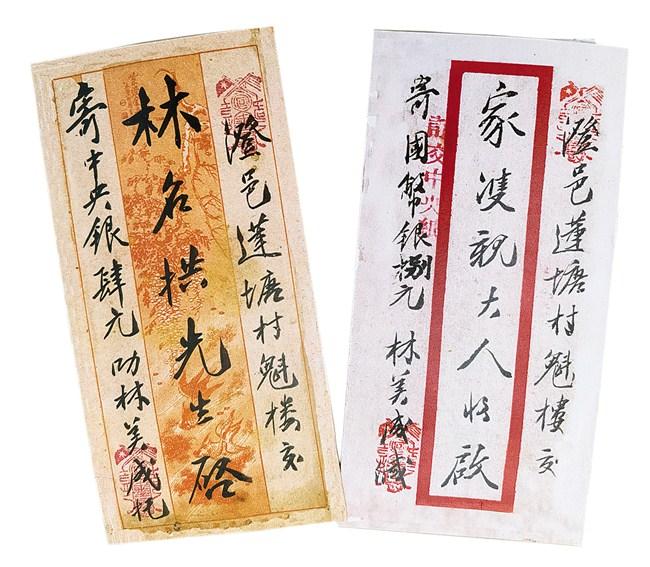 澄邑蓮塘村魁楼交
林名拱先生啓
寄中央銀肆元叻林美成托
澄邑蓮塘村魁樓交
家雙親大人收啟
寄國幣銀捌元 林美成